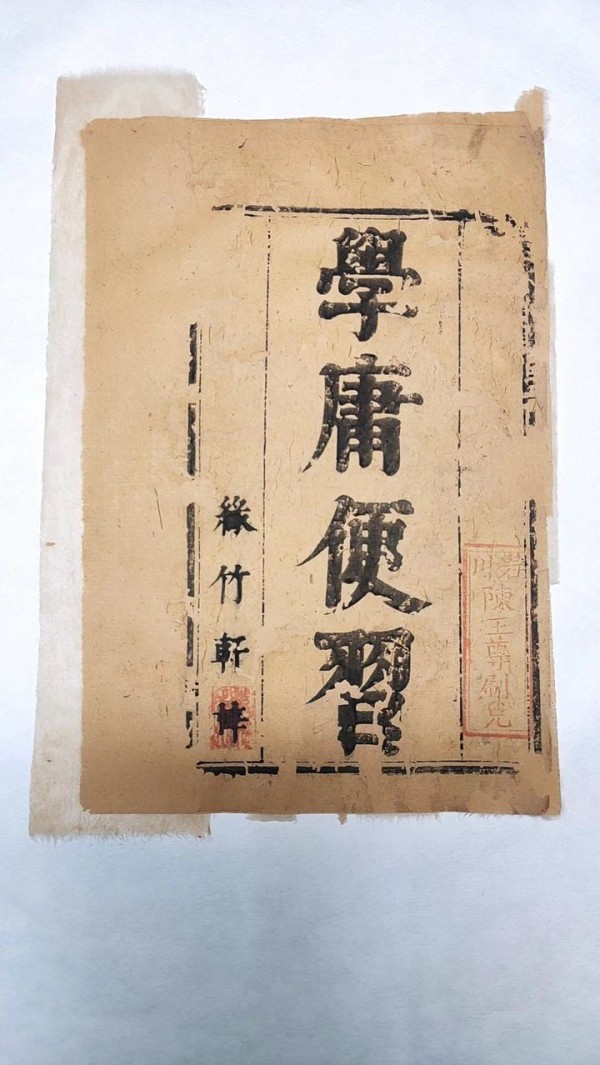 川
陳玉尊刷兌
學庸便習
綠竹軒梓